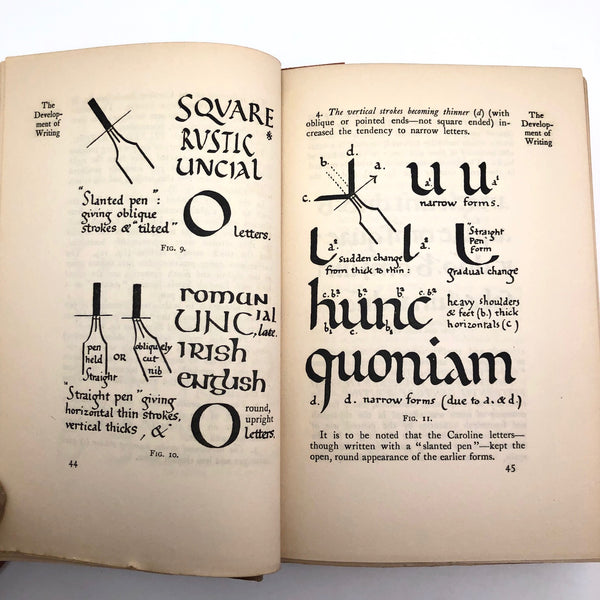 The
Development
of Writing
SQUARE
RUSTIC &
UNCIAL
"Slanted pen":
giving oblique
strokes & "tilted" O letters.
FIG. 9.
roman
UNCIAL, late.
IRISH
english
pen held Straight OR obliquely cut nib
"Straight pen" giving
horizontal thin strokes,
vertical thicks, & O round, upright letters.
FIG. 10.
44
4. The vertical strokes becoming thinner (d) (with
oblique or pointed ends—not square ended) in-
creased the tendency to narrow letters.
The
Development
of Writing
d.
b. a.
c.
u u
narrow forms.
"Straight Pen" form
sudden change
from thick to thin: gradual change
hunc
heavy shoulders
& feet (b.) thick
horizontals (c)
quoniam
d. d. narrow forms (due to a. & d.)
FIG. 11.
It is to be noted that the Caroline letters—
though written with a "slanted pen"—kept the
open, round appearance of the earlier forms.
45